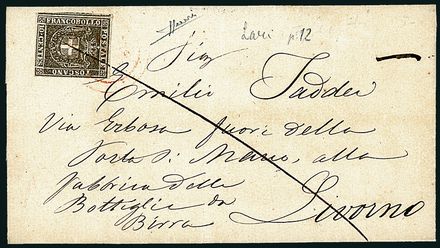 FRANCOBOLLO
POSTALE
TOSCANO
10 CENT
Lari p 12
Sig
Emilio Taddei
Via Erbosa fuori della
Porta S. Marco, alla
Fabbrica delle
Bottiglie da
Birra
Livorno